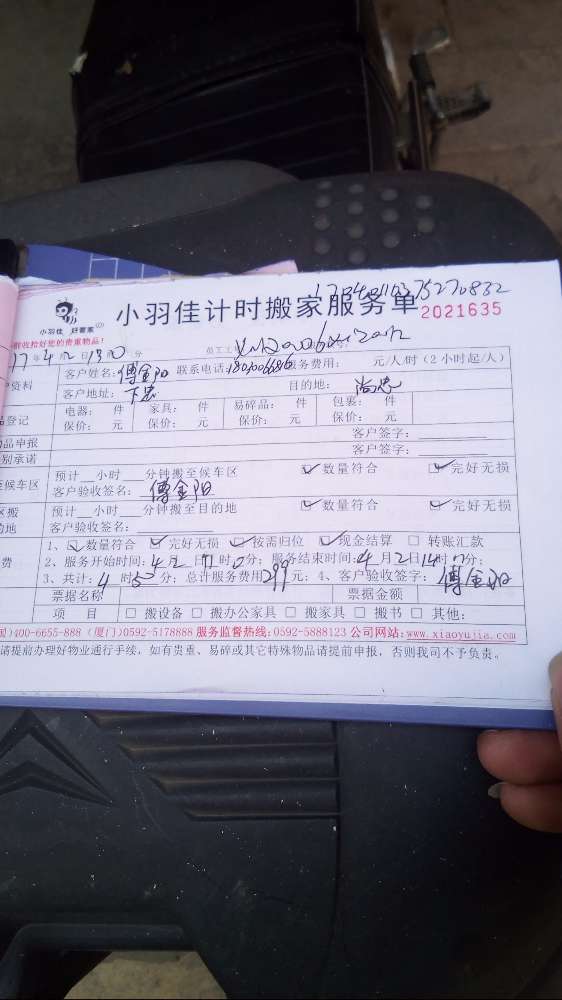 小羽佳 好管家
小羽佳计时搬家服务单
2021635
前收拾好您的贵重物品!
17年4 分 员工工
户资料 客户姓名: 傅金阳 联系电话: 服务费用: 元/人/时(2小时起/人)
客户地址: 下忠 目的地: 尚忠
品登记 电器: 件 家具: 件 易碎品: 件 包裹: 件
保价: 元 保价: 元 保价: 元 保价: 元
品申报 客户签字:
别承诺 客户签字:
至候车区 预计 小时 分钟搬至候车区 数量符合 完好无损
客户验收签名: 傅金阳
区搬 预计 小时 分钟搬至目的地 数量符合 完好无损
的地 客户验收签名:
1、 数量符合 完好无损 按需归位 现金结算 转账汇款
费 2、服务开始时间: 4 时0分; 服务结束时间: 4月2日14时 分;
3、共计: 4时50分; 总计服务费用299元; 4、客户验收签字: 傅金阳
票据名称 票据金额
项 目 搬设备 搬办公家具 搬家具 搬书 其他:
国)400-6655-888 (厦门)0592-5178888 服务监督热线:0592-5888123 公司网站:www.xiaoyujia.com
请提前办理好物业通行手续, 如有贵重、易碎或其它特殊物品请提前申报, 否则我司不予负责。